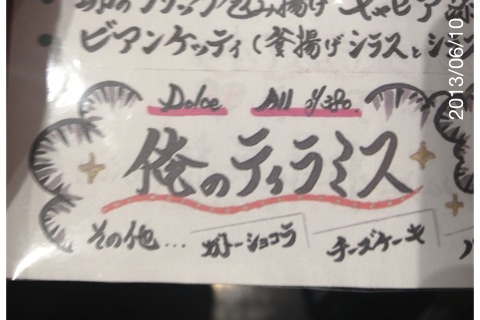 ビアンケッティ(釜揚げシラスと
Dolce All ¥380
俺のティラミス
その他... ガトーショコラ チーズケーキ
2013/06/10